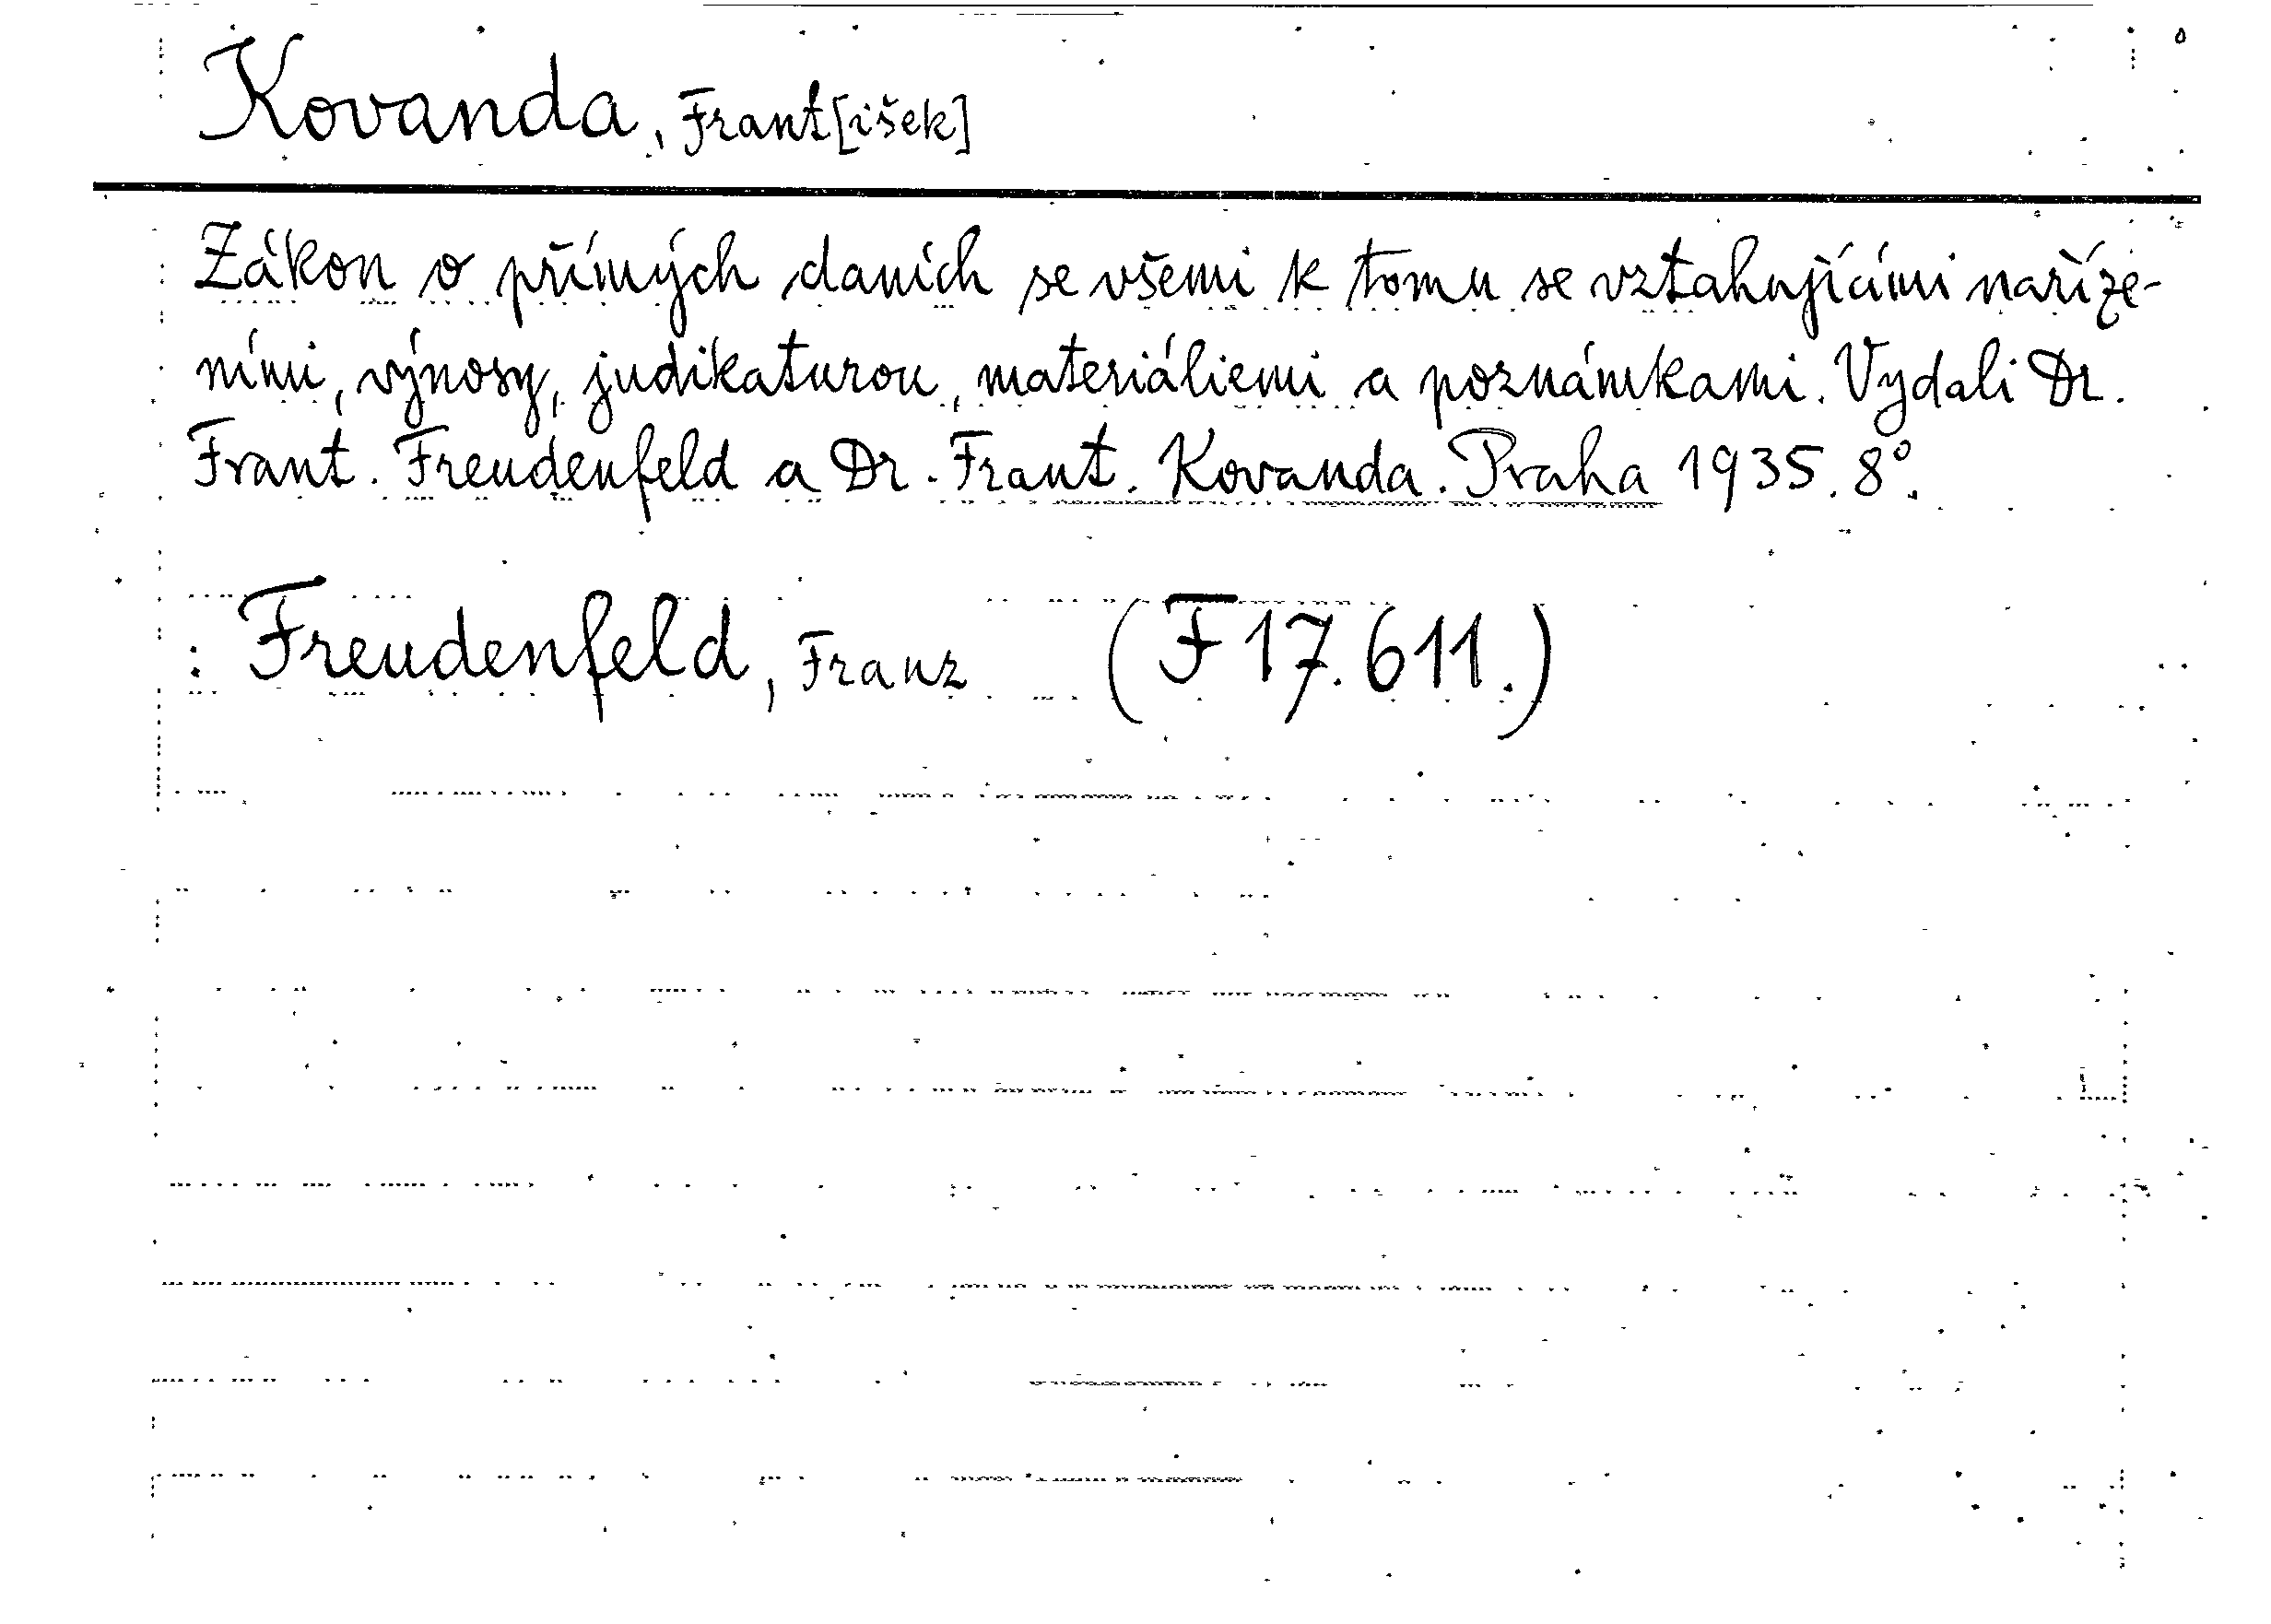 Kovanda, Frant[išek]
Zákon o přímých daních se všemi k tomu se vztahujícími naříze-
ními, výnosy, judikaturou, materiáliemi a poznámkami. Vydali Dr.
Frant. Freudenfeld a Dr. Frant. Kovanda. Praha 1935. 8°.
: Freudenfeld, Franz (F 17.611.)